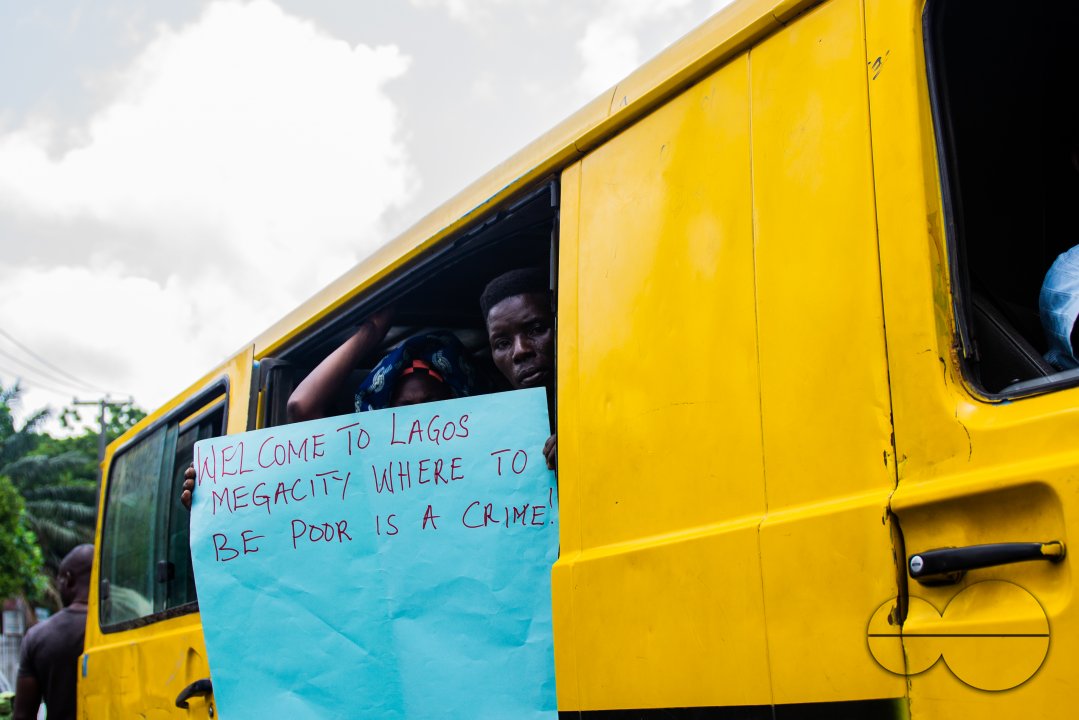 WELCOME TO LAGOS
MEGACITY WHERE TO
BE POOR IS A CRIME!